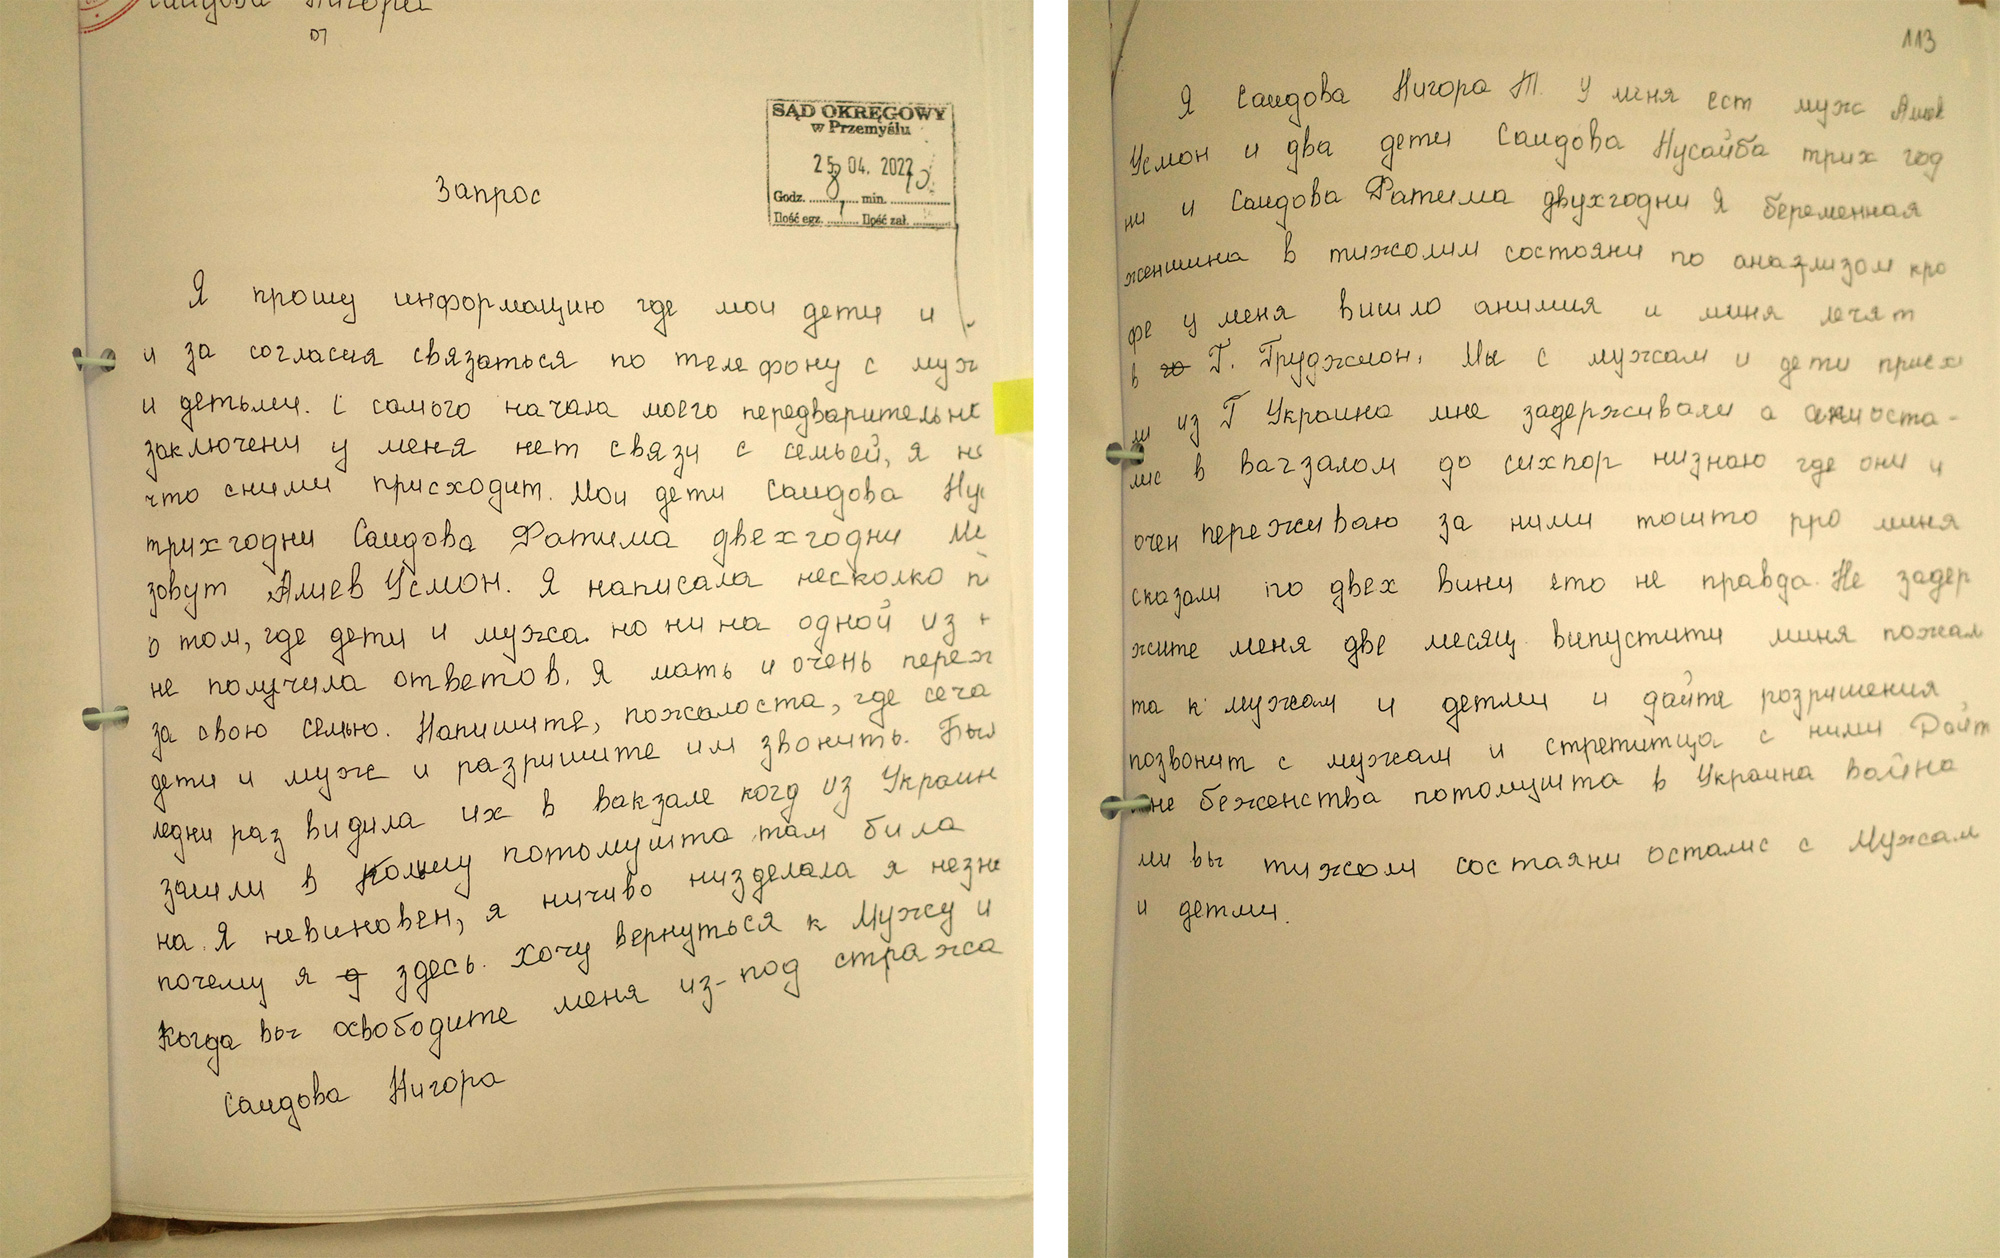 Саидова Нигора
Запрос
SĄD OKRĘGOWY
w Przemyślu
25 04. 2022
Godz. 8 min. 10
Ilość egz. 1 Ilość zał.
Я прошу информацию где мои дети и
и за согласия связаться по телефону с муж
и детьми. С самого начала моего передварительно
заключени у меня нет связи с семьей, я не
что сними присходит. Мои дети Саидова Нус
трихгодни Саидова Фатима двехгодни Ме
зовут Алиев Усмон. Я написала несколко п
о том, где дети и мужа. но ни на одной из н
не получила ответов. Я мать и очень переж
за свою семю. Напишите, пожалоста, где сеча
дети и муж и разришите им звонить. Был
ледни раз видила их в вакзале когд из Украин
зашли в Полшу потомушта там била
на. Я невиновен, я ничиво низделала я незна
почему я здесь. хочу вернуться к Мужу и
Когда вы освободите меня из-под стража
Саидова Нигора
113
Я Саидова Нигора Т. У меня ест муж Алиев
Усмон и два дети Саидова Нусайба трих год
ни и Саидова Фатима двухгодни Я беременная
женшина в тижолим состояни по анализом кро
фе у меня вишло анимия и миня лечят
в Г. Груджион. Мы с мужам и дети приех
ли из Г Украина мне задерживали а они оста-
лис в вагзалом до сихпор низнаю где они и
очен переживаю за ними тошто про миня
сказали по двех вини ето не правда. Не задер
жите меня две месяц випустити миня пожал
та к мужам и детми и дайте розришения
позвонит с мужам и стретитца с ними Дайт
мне беженства потомушта в Украина война
ми вы тижоли состаяни осталис с Мужам
и детми.